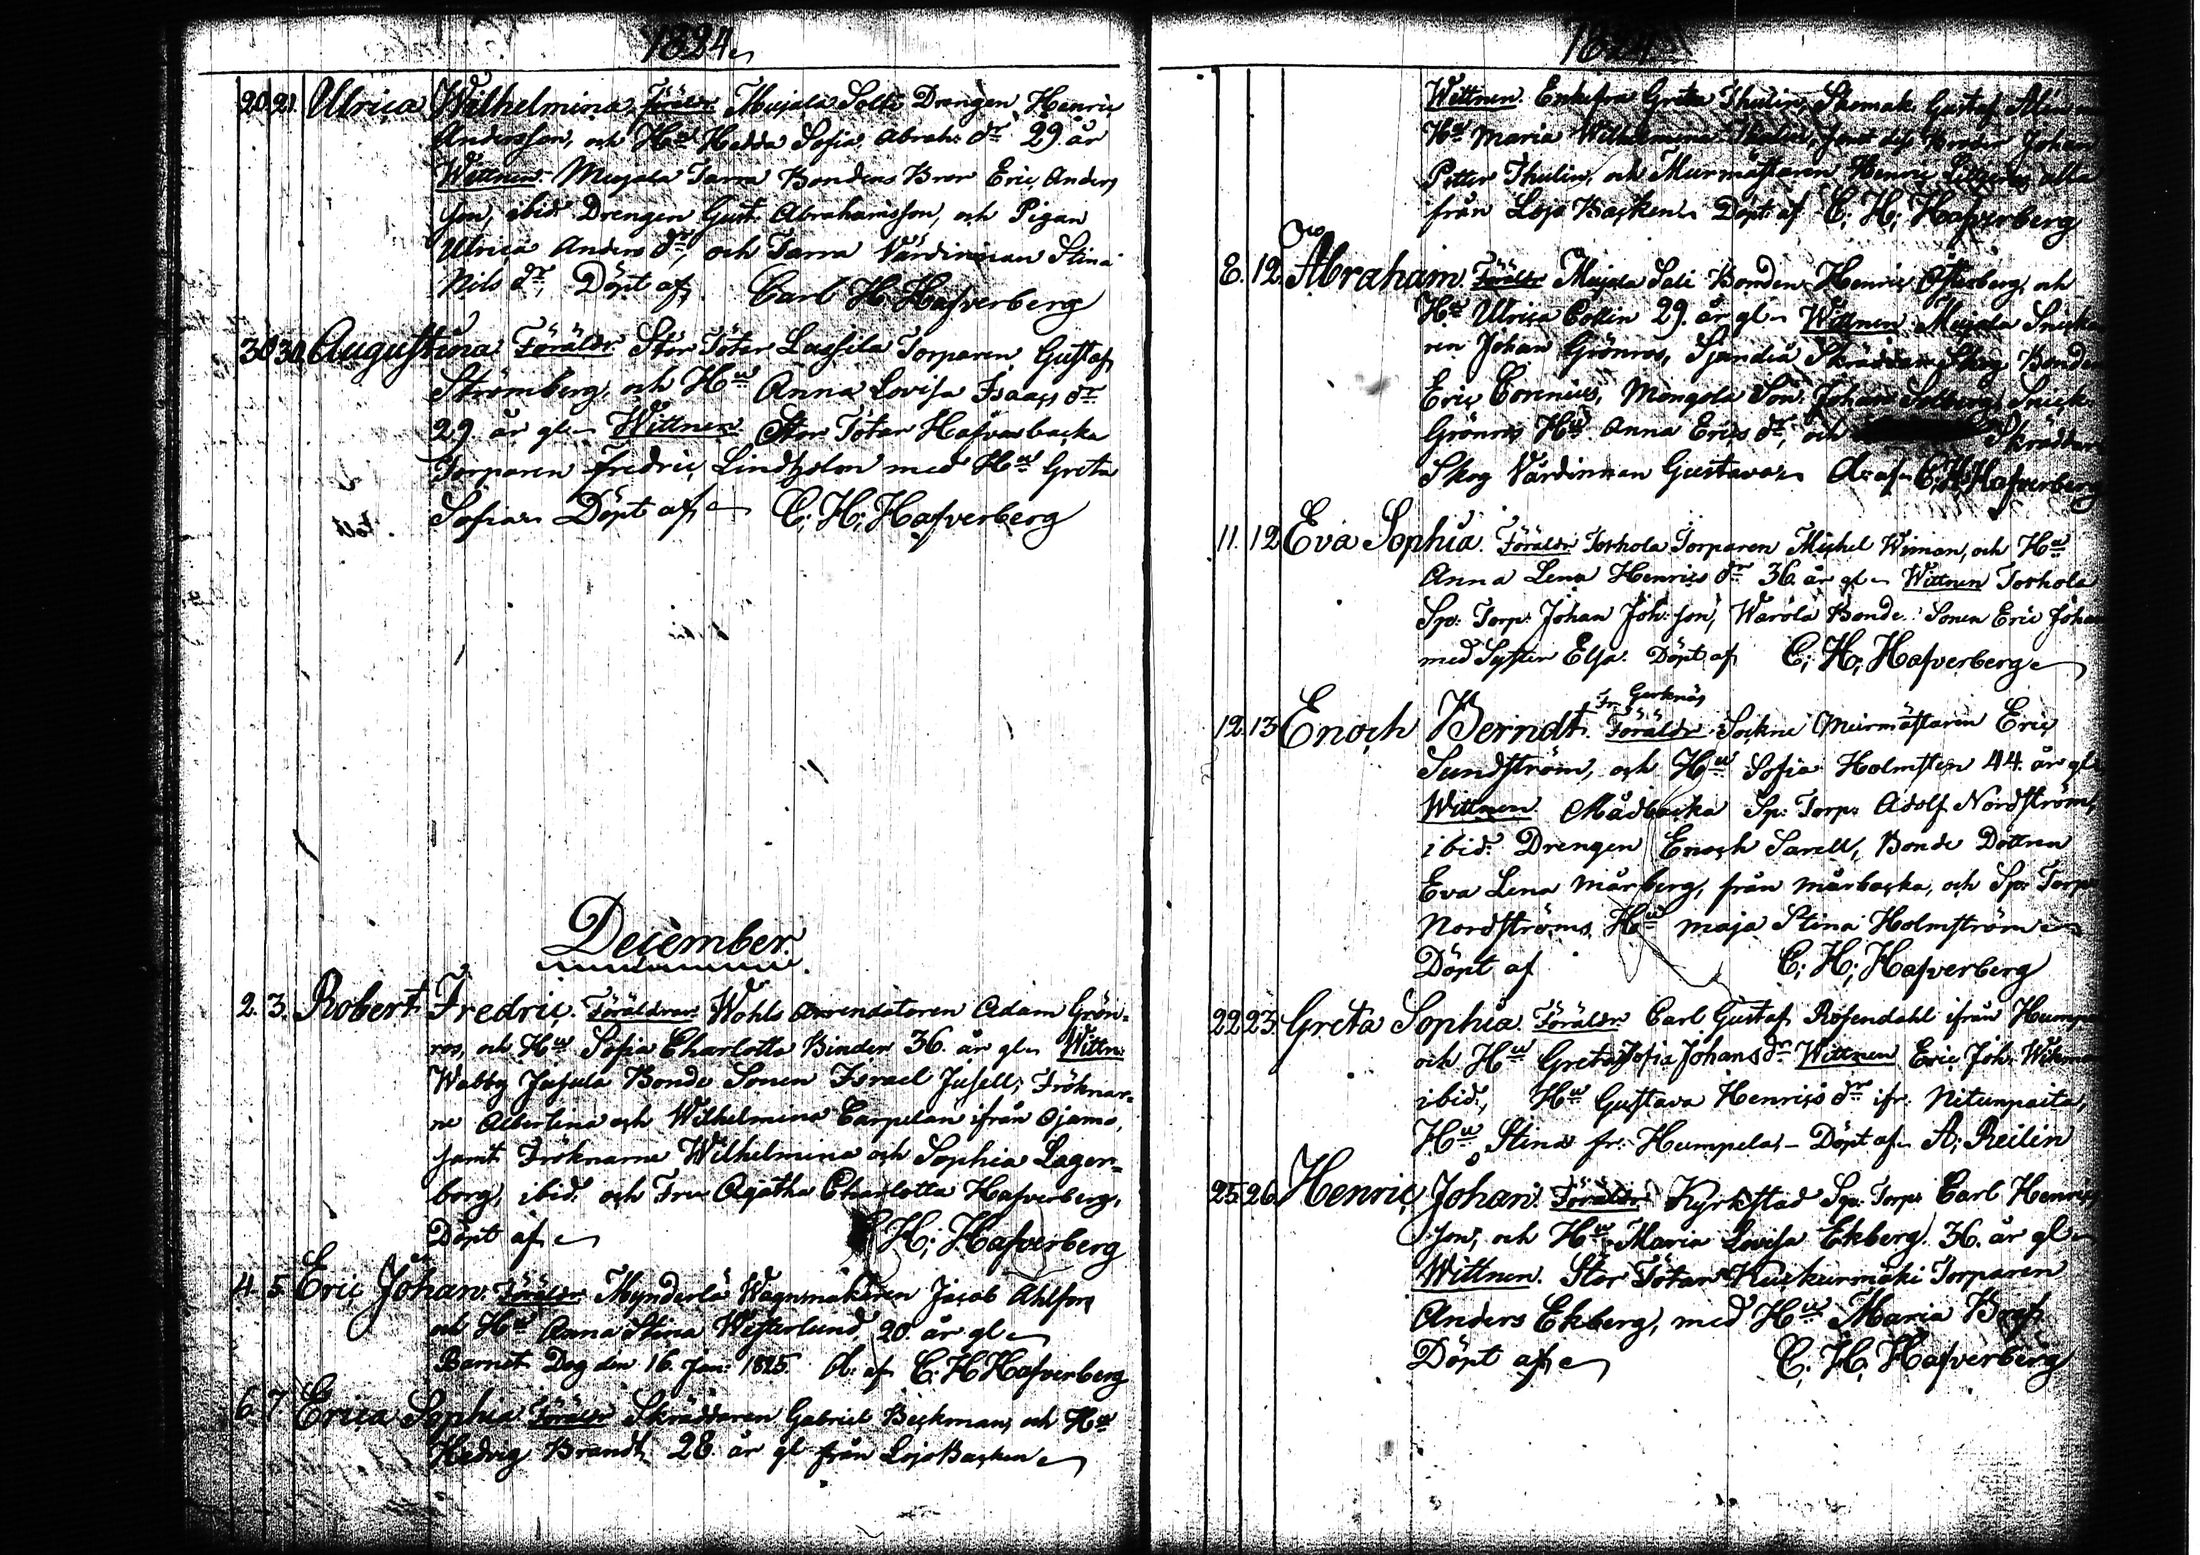 1824
20 21 Ulrica Wilhelmina. Föräldr. Mujala Solti Drengen Henric
Andersson, och Hu Hedda Sofia Abrah: dr 29. år
Wittnen. Mujala Tarra Bondens Bror Eric Anders
son, ibid. Drengen Gust. Abrahamsson, och Pigan
Ulrica Anders dr, och Tarra Värdinnan Stina
Nils dr, Döpt af Carl H. Hafverberg
30 30 Augustina Föräldr. Stor Töter Lassila Torparen Gustaf
Strömberg, och Hu Anna Lovisa Isaacs dr
29 år gl. Wittnen Stor Tötar Hafverbacka
Torparen Fredric Lindholm med Hu Greta
Sofia. Döpt af C: H: Hafverberg
December.
2. 3. Robert Fredric. Föräldrar. Wohls Arrendatoren Adam Grön=
ros, och Hu Sofia Charlotta Binder 36. år gl. Wittn.
Wabby Jusula Bonde Sonen Israel Jusell, Fröknar=
ne Albertina och Wilhelmina Carpelan ifrån Ojamo,
samt Fröknarne Wilhelmina och Sophia Lager=
borg, ibid. och Fru Agatha Charlotta Hafverberg,
Döpt af C H: Hafverberg
4. 5. Eric Johan. Föräldr. Mynderlä Wagnmakaren Jacob Ahlfors
och Hu Anna Stina Westerlund, 20. år gl.
Barnet Dog den 16. Jan: 1825. D: af C. H Hafverberg
6. 7. Erica Sophia Föräldr Skräddaren Gabriel Beckman, och Hu
Hedvig Brandt, 28. år gl från Lojo Backen
Wittnen. Enkefru Greta Thulin, Skomak. Gustaf
Hu Maria Wilhelmina Thulin, samt dess Broder Johan
Petter Thulin, och Murmästaren Henric alla
från Lojo Backen. Döpt af C: H: Hafverberg
8. 12. Abraham. Föräldr Mujala Sali Bonden Henric Österberg, och
Hu Ulrica Collin 29. år gl. Wittnen Mujala Snicka
ren Johan Grönros, Skräddar Skog Bonden
Eric Corenius, Mongola Son Johan Solberg, Snick.
Grönros Hu Anna Erics dr, och Skräddar
Skog Värdinnan Gustava. D: af C: H: Hafverberg
11. 12 Eva Sophia. Föräldr Torhola Torparen Michel Wiman, och Hu
Anna Lena Henrics dr 36. år gl. Wittnen Torhola
Sp: Torp. Johan Joh: son, Warola Bonde Sonen Eric Johan
med Syster Elsa. Döpt af C: H: Hafverberg
fr Gerknäs
12. 13 Enoch Berndt. Föräldr Sockne Murmästaren Eric
Sundström, och Hu Sofia Holmsten 44. år gl.
Wittnen Mådbacka Sp: Torp. Adolf Nordström,
ibid. Drengen Enoch Sarell, Bonde Dottren
Eva Lena Mårberg, från Mårbacka, och Sp: Torp
Nordströms Hu Maja Stina Holmström
Döpt af C: H: Hafverberg
22 23. Greta Sophia. Föräldr Carl Gustaf Rosendahl ifrån
och Hu Greta Sofia Johans dr Wittnen Eric Joh:
ibid, Hu Gustava Henrics dr ifr. Nitunpaita,
Hu Stina fr. Humpela, - Döpt af A: Reilin
25. 26. Henric Johan. Föräldr. Kyrkstad Sp: Torp. Carl Henrics
son, och Hu Maria Lovisa Ekberg 36. år gl.
Wittnen. Stor Tötar Kuckurmäki Torparen
Anders Ekberg, med Hu Maria
Döpt af C. H. Hafverberg